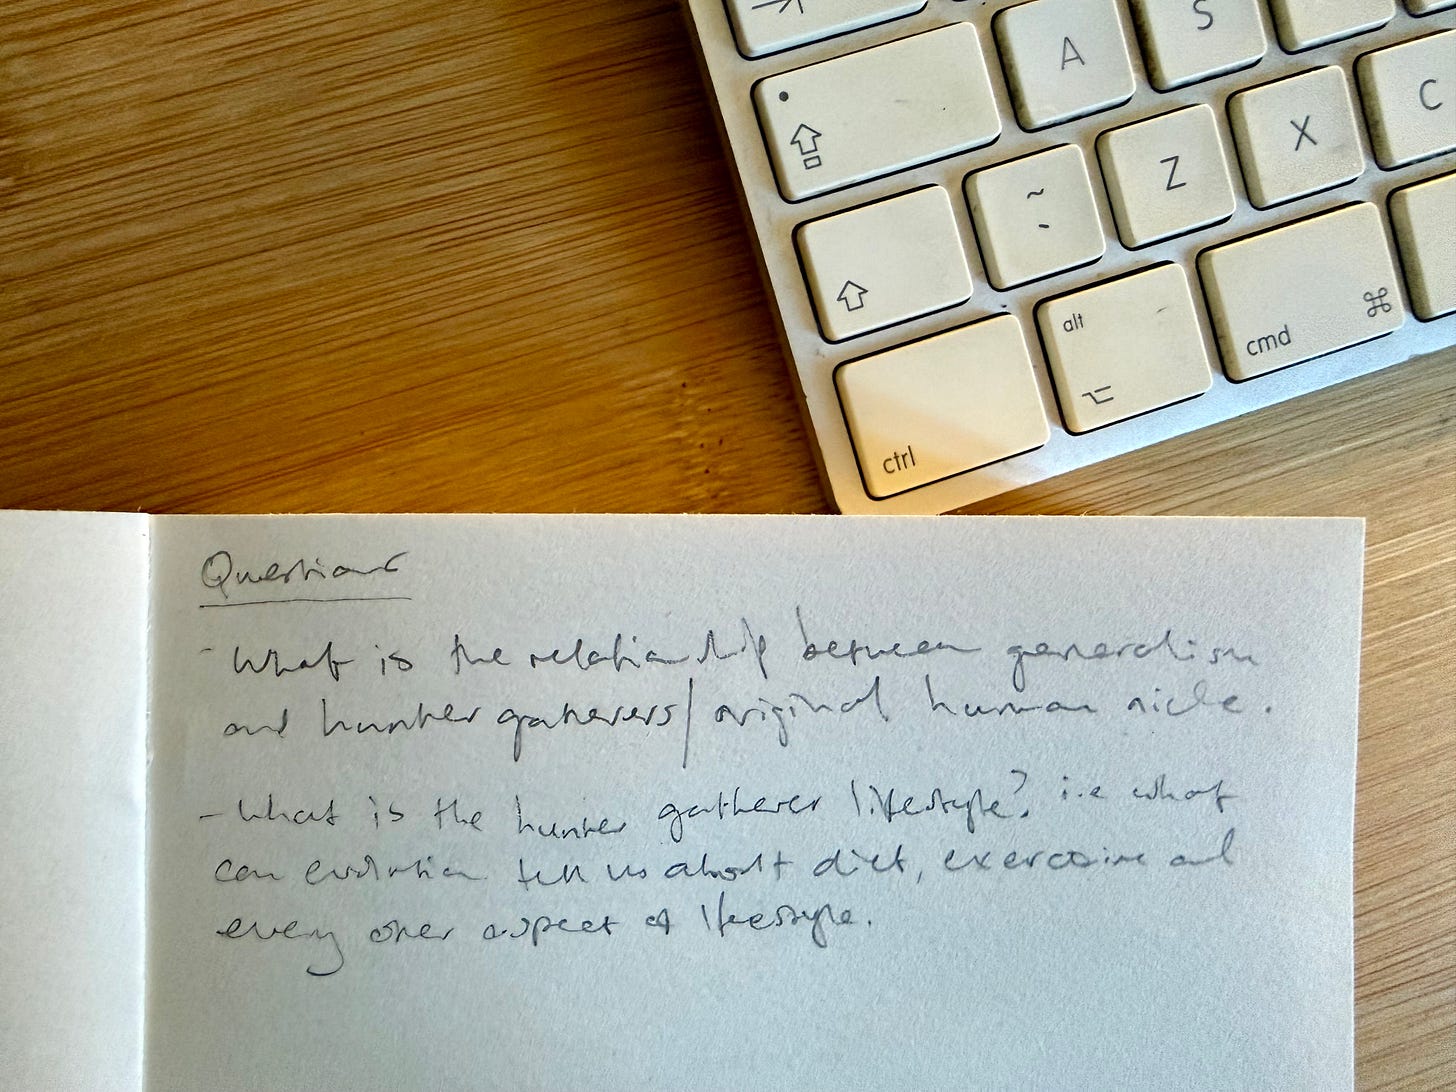 A S
A Z X C
alt
cmd ⌘
ctrl
Questions
- What is the relationship between generalism
and hunter gatherers/original human niche.
- What is the hunter gatherer lifestyle? i.e what
can evolution tell us about diet, exercise and
every other aspect of lifestyle.